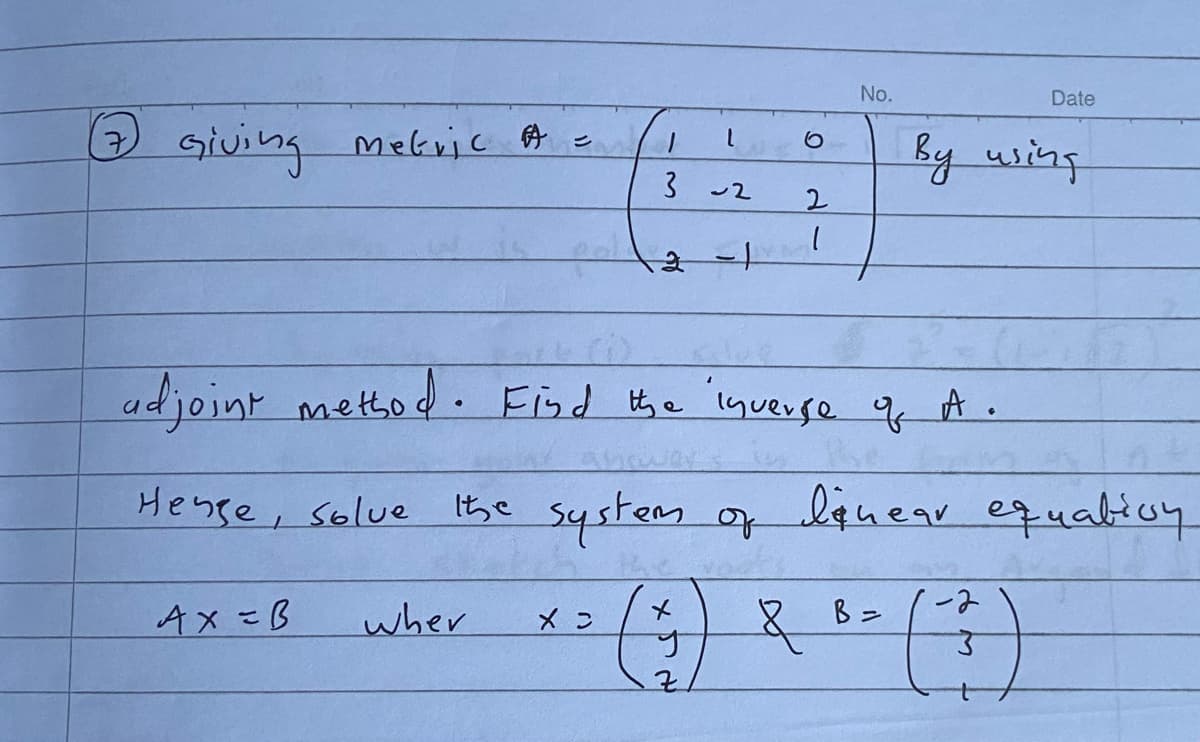 No. Date
⑦ Giving metric A = ( 1 1 0 By using
3 -2 2
2 -1 1 )
adjoint method. Find the inverse of A.
Hense, solve the system of linear equation
AX = B wher X = ( x y z ) & B = ( -2 3 1 )